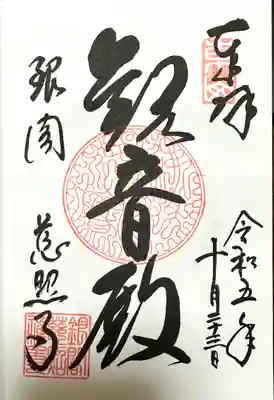 奉拝
令和五年
十月二十三日
観音殿
銀閣
慈照寺